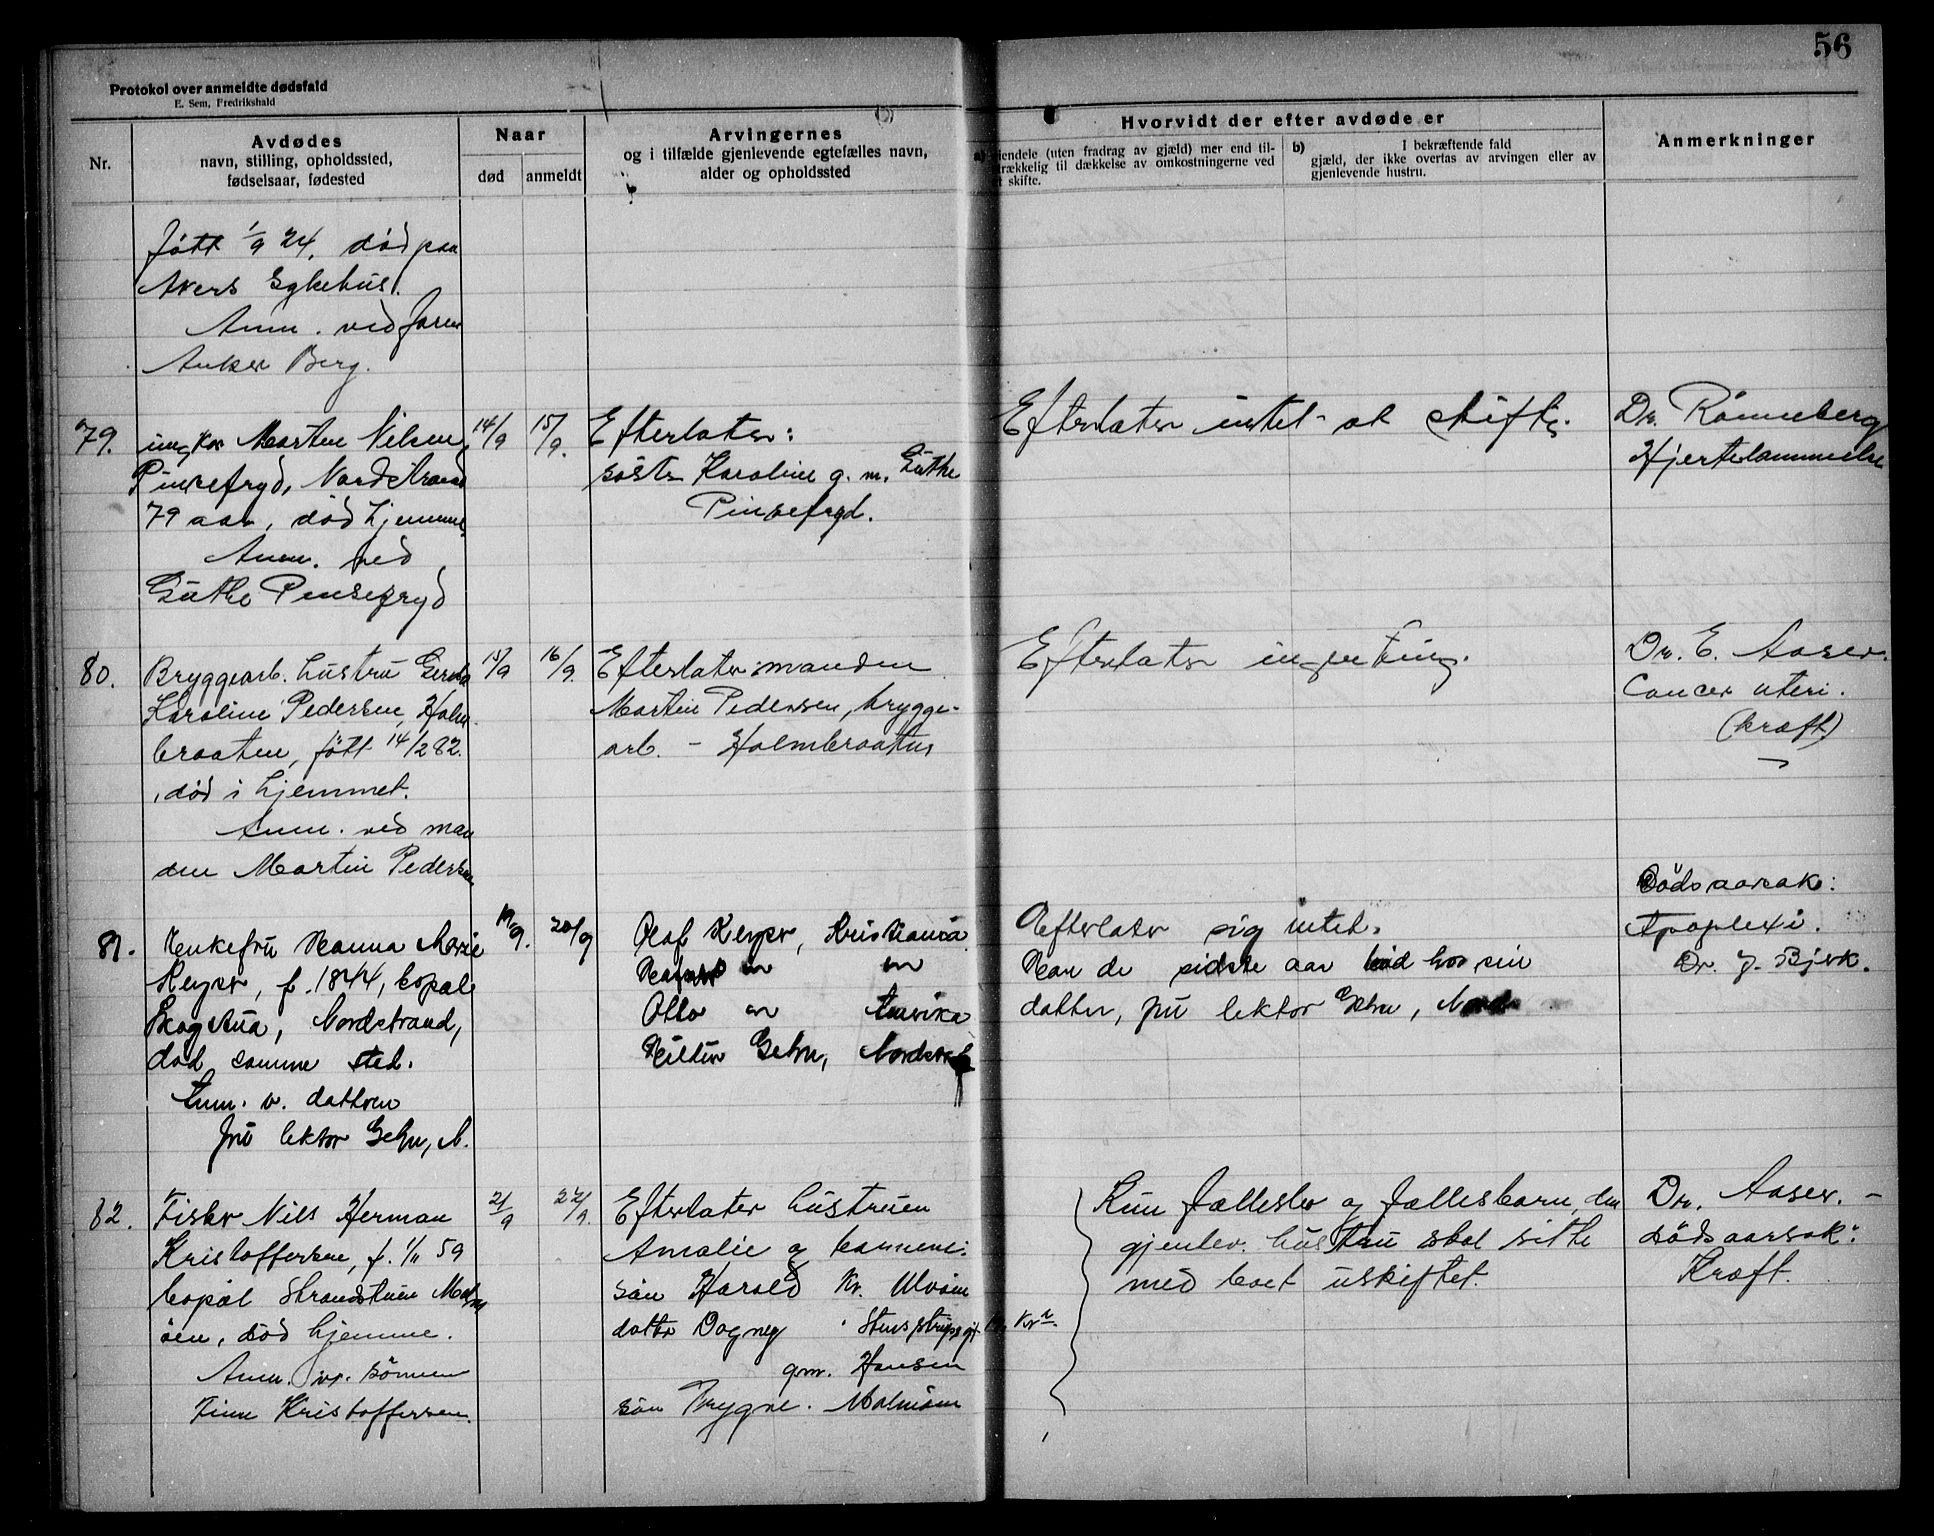 56
Protokol over anmeldte dødsfald
E. Sem, Fredrikshald
Nr.
Avdødes
navn, stilling, opholdssted,
fødselsaar, fødested
Naar
død
anmeldt
Arvingernes
og i tilfælde gjenlevende egtefælles navn,
alder og opholdssted
Hvorvidt der efter avdøde er
a) eiendele (uten fradrag av gjæld) mer end til-
strækkelig til dækkelse av omkostningerne ved
et skifte.
b) I bekræftende fald
gjæld, der ikke overtas av arvingen eller av
gjenlevende hustru.
Anmerkninger
født 1/9 24, død paa
Akers Sykehus.
Anm. ved faren
Anker Berg.
79.
ungkar Morten Nilsen,
Pinsefryd, Nordstrand
79 aar, død hjemme.
Anm. ved
Güthe Pinsefryd
14/9
15/9.
Efterlater:
søster Karoline g. m. Güthe
Pinsefryd.
Efterlater intet at skifte.
Dr. Rønneberg
Hjertelammelse
80.
Bryggearb. hustru Gerda
Karoline Pedersen, Holm-
braaten, født 14/2 82.
død i hjemmet.
Anm. ved man
den Martin Pedersen
15/9
16/9.
Efterlater: manden
Martin Pedersen, brygge-
arb. - Holmbraaten
Efterlater ingenting.
Dr. E. Aaser.
Cancer uteri.
(kræft)
81.
Enkefru Hanna Marie
Keyser, f. 1844, bopæl
Skogstua, Nordstrand,
død samme sted.
Anm. v. datteren
fru lektor Gehn, N.
19/9.
20/9
Olaf Keyser, Kristiania
Otto " Amerika
Gehn, Nordstrand
Efterlater sig intet.
Har de sidste aar bod hos sin
datter, fru lektor Gehn, Nordst
Dødsaarsak:
Apoplexi.
Dr. J. Bjerk.
82.
Fisker Nils Herman
Kristoffersen, f. 1/11 59
bopæl Strandstuen Malm
øen, død hjemme.
Anm. v. sønnen
Finn Kristoffersen.
21/9
22/9.
Efterlater hustruen
Amalie og barnene:
søn Harald Kr. Ulvøen
datter Dagney
gm. Hansen
søn Trygve. Malmøen
Kun fælleseie og fællesbarn, den
gjenlev. hustru skal sitte
med boet uskiftet.
Dr. Aaser. -
dødsaarsak:
Kræft.